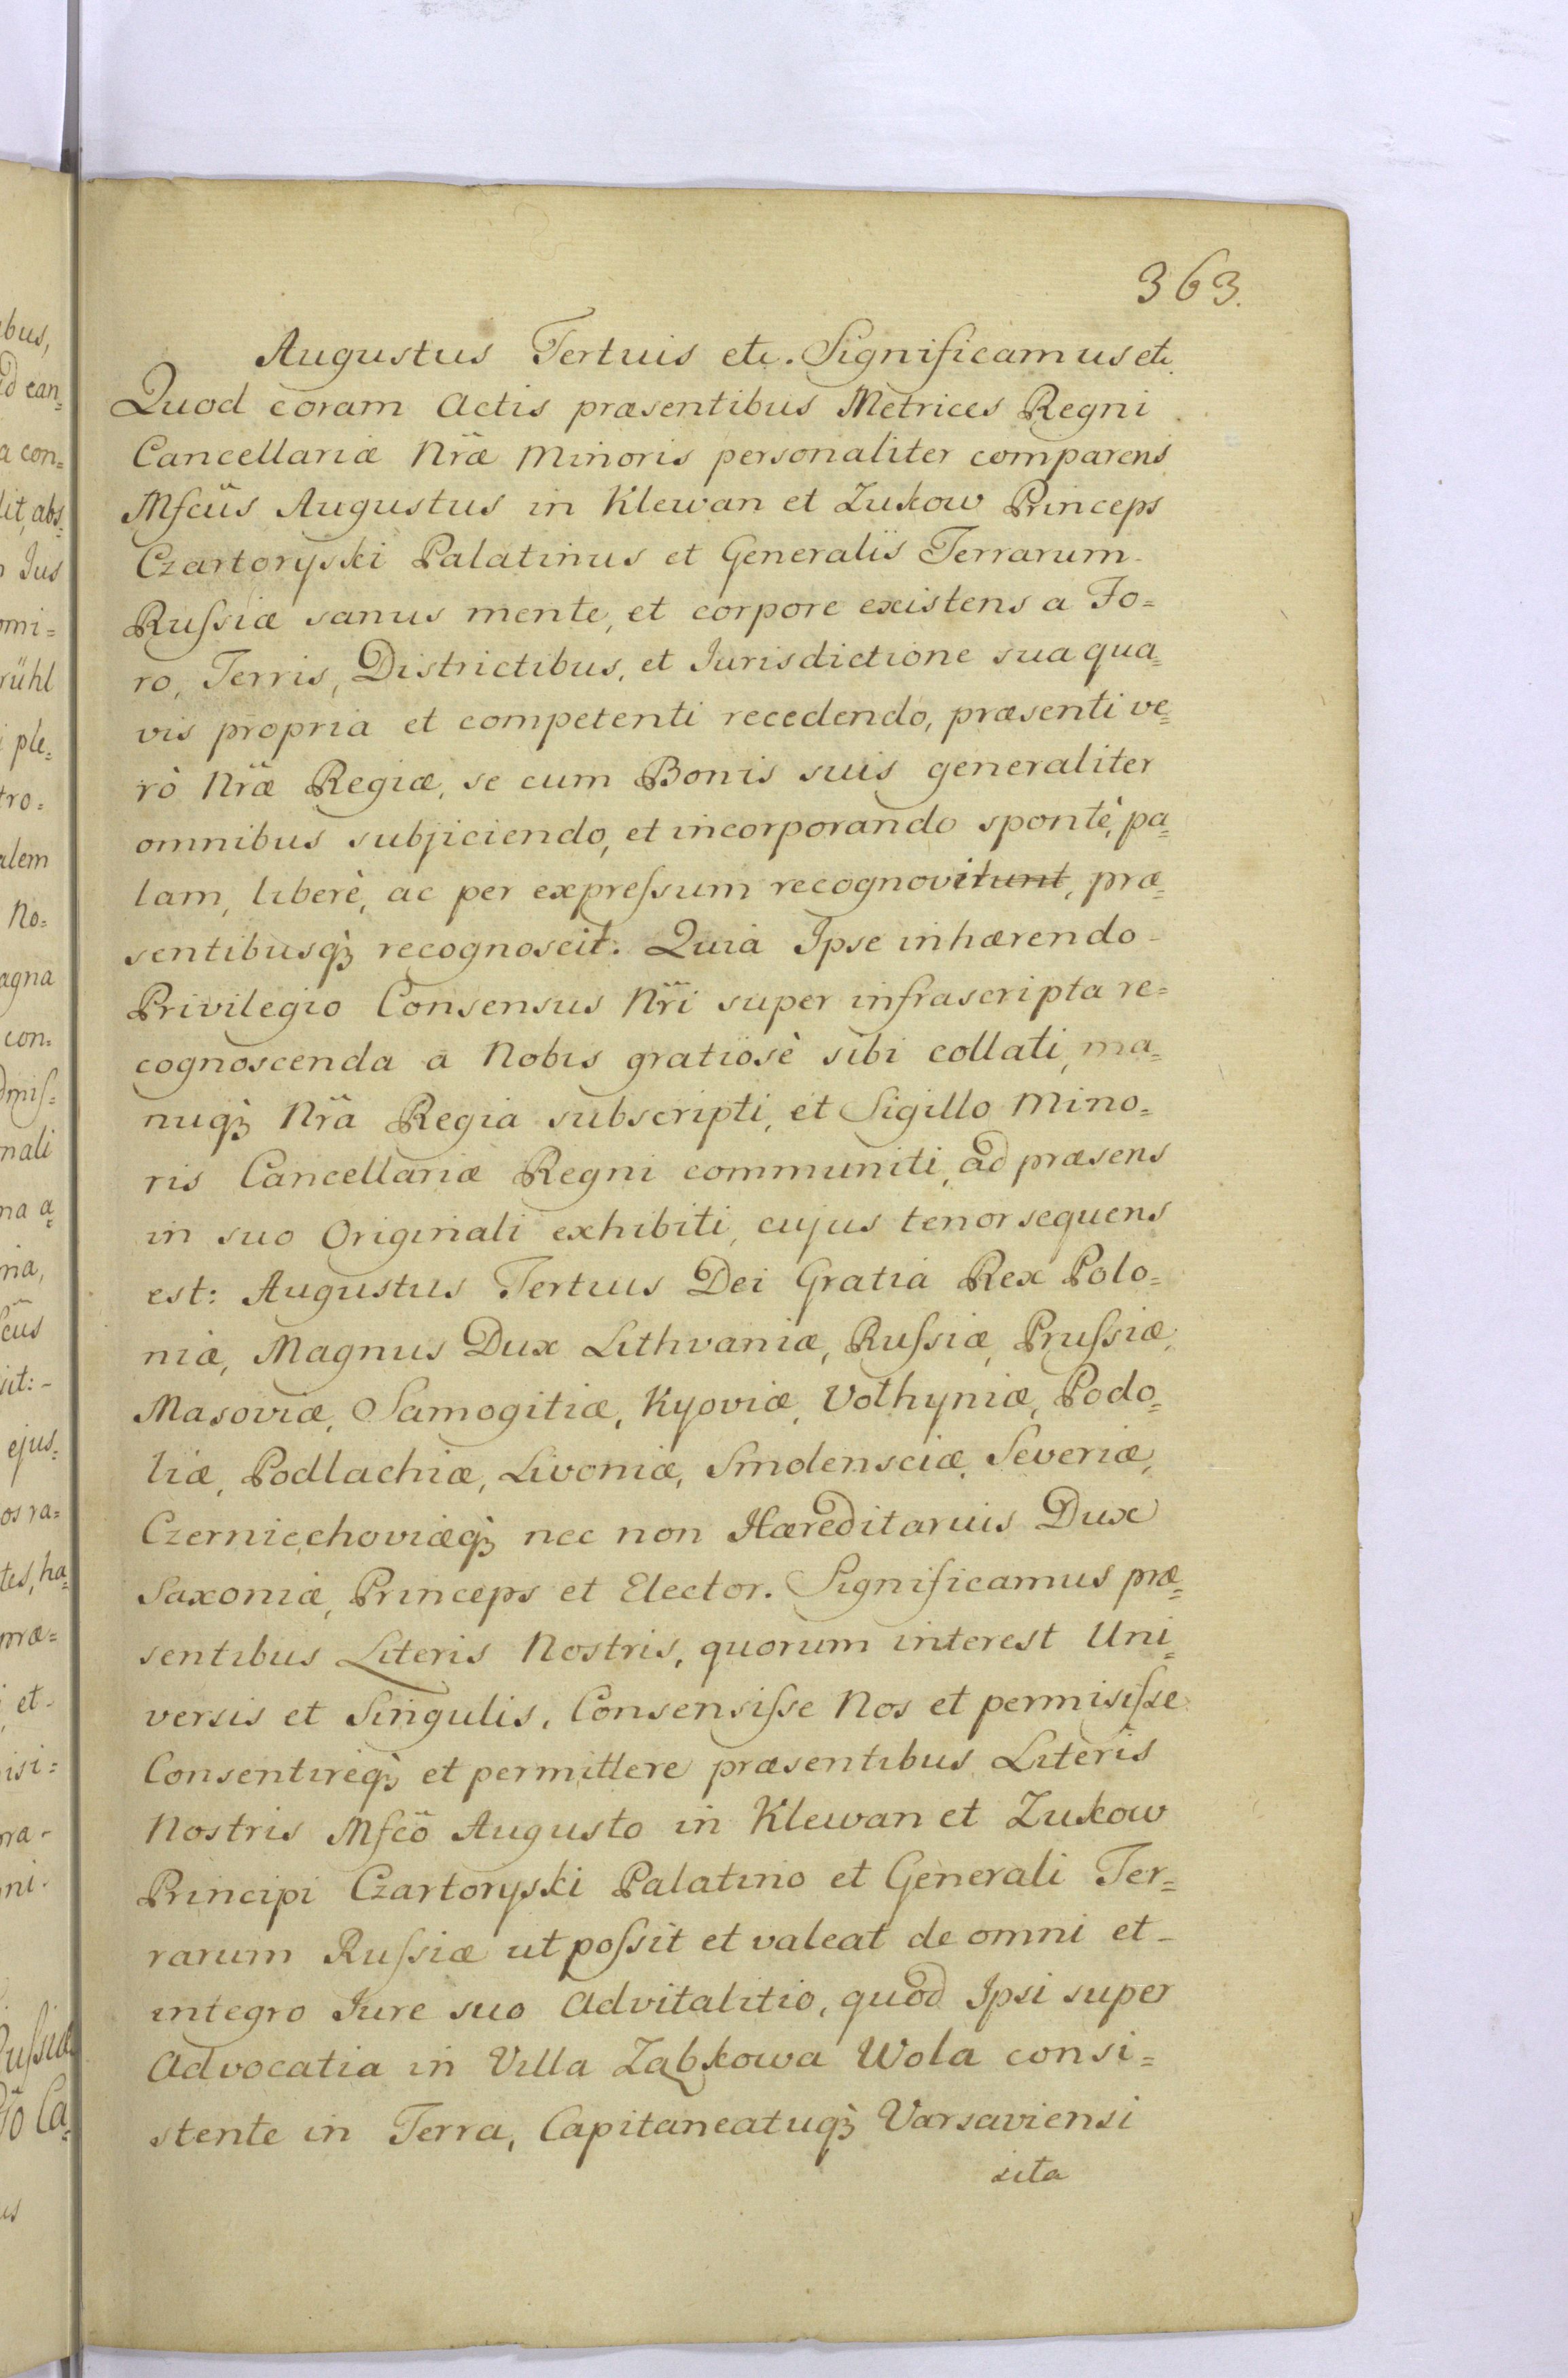 363.
Augustus Tertius etc. Significamus etc.
Quod coram Actis præsentibus Metrices Regni
Cancellariæ Nræ Minoris personaliter comparens
Mfcus Augustus in Klewan et Zukow Princeps
Czartoryski Palatinus et Generalis Terrarum
Rufsiæ sanus mente, et corpore existens a Fo=
ro, Terris, Districtibus, et Iurisdictione sua qua=
vis propria et competenti recedendo, præsenti ve=
rò Nræ Regiæ, se cum Bonis suis generaliter
omnibus subjiciendo, et incorporando spontè, pa=
lam, liberè, ac per exprefsum recognovit, præ=
sentibusq; recognoscit. Quia Ipse inhærendo
Privilegio Consensus Nri super infrascripta re=
cognoscenda a Nobis gratiosè sibi collati, ma=
nuq; Nra Regia subscripti, et Sigillo Mino=
ris Cancellariæ Regni communiti, ad præsens
in suo Originali exhibiti, cujus tenor sequens
est: Augustus Tertius Dei Gratia Rex Polo=
niæ, Magnus Dux Lithvaniæ, Rufsiæ, Prufsiæ,
Masoviæ, Samogitiæ, Kyoviæ, Volhyniæ, Podo=
liæ, Podlachiæ, Livoniæ, Smolensciæ, Severiæ,
Czerniechoviæq; nec non Hæreditarius Dux
Saxoniæ, Princeps et Elector. Significamus præ=
sentibus Literis Nostris, quorum interest Uni=
versis et Singulis, Consensifse Nos et permisifse
Consentireq; et permittere præsentibus Literis
Nostris Mfco Augusto in Klewan et Zukow
Principi Czartoryski Palatino et Generali Ter=
rarum Rufsiæ ut pofsit et valeat de omni et
integro Iure suo Advitalitio, quod Ipsi super
Advocatia in Villa Ząbkowa Wola consi=
stente in Terra, Capitaneatuq; Varsaviensi
sita